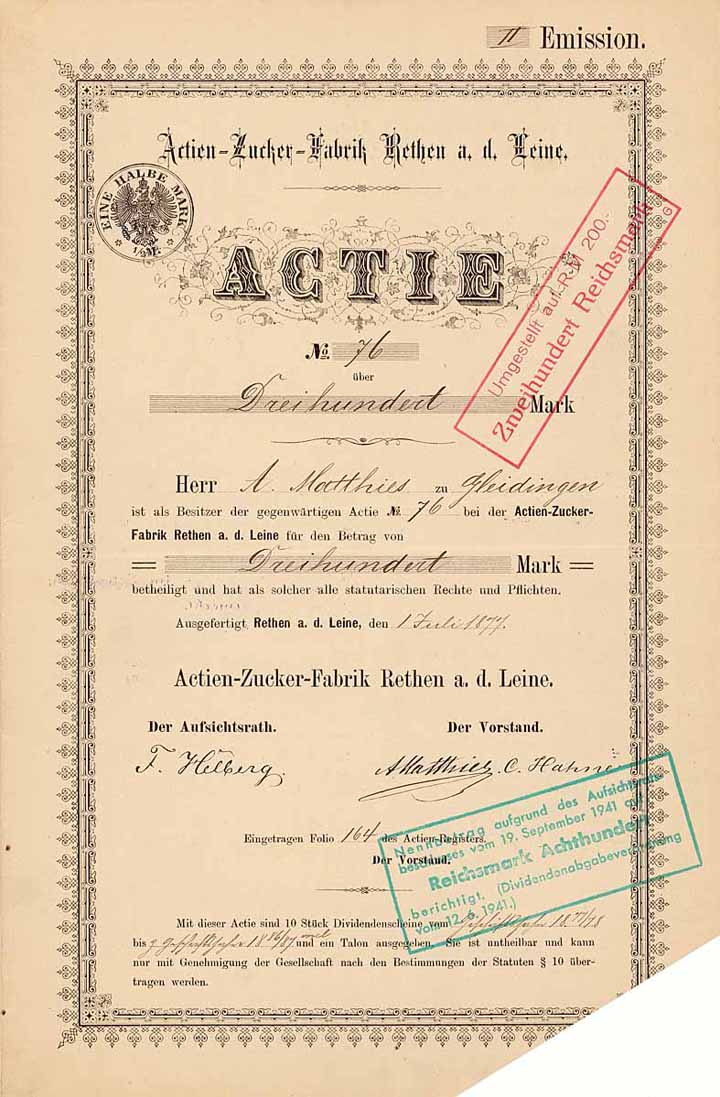 II Emission.
Actien-Zucker-Fabrik Rethen a. d. Leine.
EINE HALBE MARK
1/2 M.
ACTIE
Umgestellt auf R.M 200.-
Zweihundert Reichsmark
No. 76
über
Dreihundert Mark
Herr A. Matthies zu Gleidingen
ist als Besitzer der gegenwärtigen Actie No. 76 bei der Actien-Zucker-
Fabrik Rethen a. d. Leine für den Betrag von
Dreihundert Mark
betheiligt und hat als solcher alle statutarischen Rechte und Pflichten.
Ausgefertigt, Rethen a. d. Leine, den 1 Juli 1877.
Actien-Zucker-Fabrik Rethen a. d. Leine.
Der Aufsichtsrath. Der Vorstand.
F. Helberg. AMatthies. C. Hahne
Nennbetrag aufgrund des Aufsichtsrats-
beschlusses vom 19. September 1941 auf
Reichsmark Achthundert
berichtigt. (Dividendenabgabeverordnung
vom 12.6.1941.)
Eingetragen Folio 164 des Actien-Registers.
Der Vorstand.
Mit dieser Actie sind 10 Stück Dividendenscheine vom 1877/78
bis 18 und ein Talon ausgegeben. Sie ist untheilbar und kann
nur mit Genehmigung der Gesellschaft nach den Bestimmungen der Statuten § 10 über-
tragen werden.